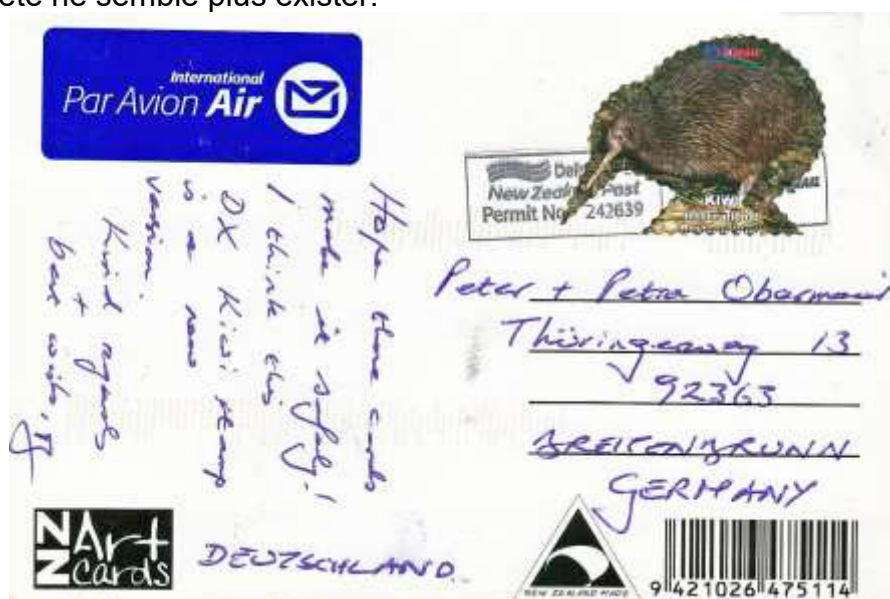 ète ne semble plus exister.
International
Par Avion Air
New Zealand Post
Permit No. 242639
KIWI
International
Hope these cards
make it safely!
I think this
DX Kiwi stamp
is a new
version.
Kind regards
+
best wishes,
Peter + Petra Obermair
Thüringerweg 13
92363
BREITENBRUNN
GERMANY
DEUTSCHLAND.
NZ Art
Cards
NEW ZEALAND MADE
9 421026 475114